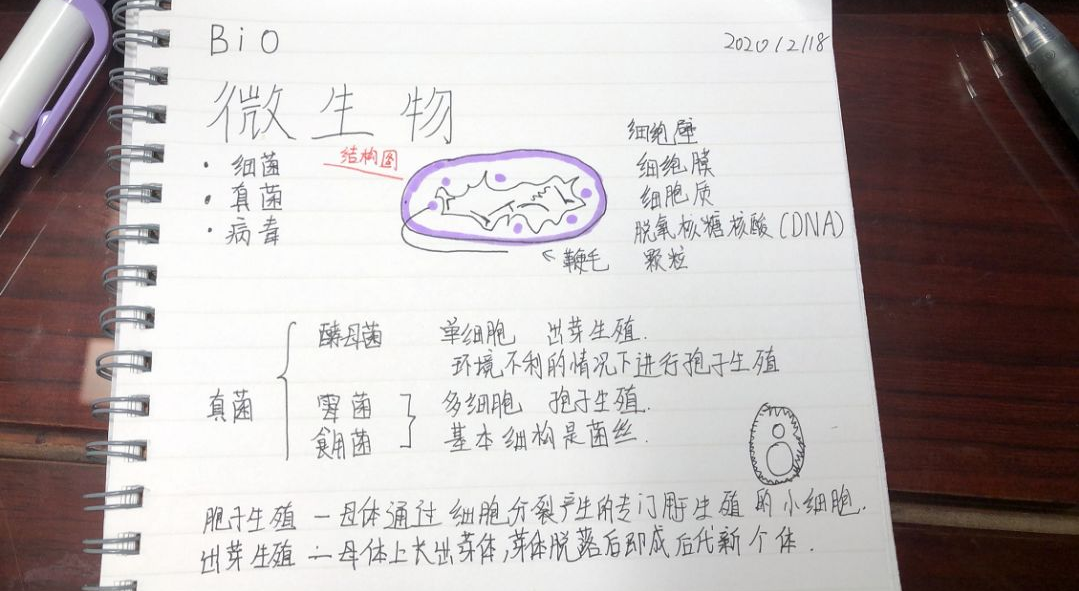 Bio
2020/2/18
微生物
· 细菌
· 真菌
· 病毒
结构图
细胞壁
细胞膜
细胞质
脱氧核糖核酸(DNA)
鞭毛
颗粒
真菌
酵母菌 单细胞 出芽生殖.
环境不利的情况下进行孢子生殖
霉菌 多细胞 孢子生殖.
食用菌 基本细构是菌丝.
胞子生殖 — 母体通过细胞分裂产生的专门用于生殖的小细胞.
出芽生殖 — 母体上长出芽体,芽体脱落后即成后代新个体.